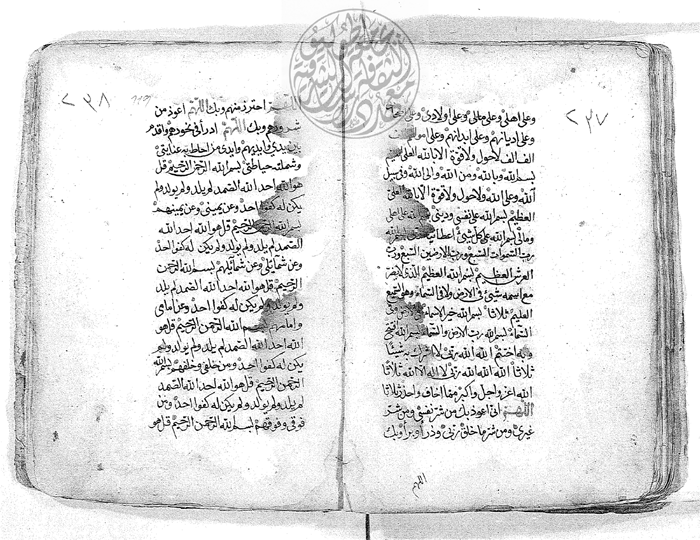 ٢٣٧
وعلى اهلي وعلى مالي وعلى اولادي وعلى
وعلى اديانهم وعلى ابدانهم وعلى اموالهم
الف الف لاحول ولا قوة الا بالله العلي العظيم
بسم الله وبالله ومن الله والى الله وفي سبيل
الله وعلى الله ولا حول ولا قوة الا بالله العلي
العظيم بسم الله على نفسي وديني بسم الله على اهلي
ومالي بسم الله على كل شئ اعطاني بسم الله
رب السموات السبع ورب الارضين السبع ورب
العرش العظيم بسم الله العظيم الذي لا يضر
مع اسمه شئ في الارض ولا في السماء وهو السميع
العليم ثلاثا بسم الله خير الاسماء في
السماء بسم الله رب الارض والسماء بسم الله افتتح
وبه اختتم الله الله ربي لا اشرك به شيئا
ثلاثا الله الله الله ربي لا اله الا الله ثلاثا
الله اعز واجل واكبر مما اخاف واحذر ثلاثا
اللهم اني اعوذ بك من شر نفسي ومن شر
غيري ومن شر ما خلق ربي وذرا وبرا وبك
اللهم
٢٣٨
اللهم احترز منهم وبك اللهم اعوذ من
شرورهم وبك اللهم ادرا في نحورهم واقدم
بين يدي وايديهم وايدي من احاطته عنايتي
وشملته حياطتي بسم الله الرحمن الرحيم قل
هو الله احد الله الصمد لم يلد ولم يولد ولم
يكن له كفوا احد وعن يميني وعن يمينهم
بسم الله الرحمن الرحيم قل هو الله احد الله
الصمد لم يلد ولم يولد ولم يكن له كفوا احد
وعن شمالي وعن شمائلهم بسم الله الرحمن
الرحيم قل هو الله احد الله الصمد لم يلد
ولم يولد ولم يكن له كفوا احد وعن امامي
وامامهم بسم الله الرحمن الرحيم قل هو
الله احد الله الصمد لم يلد ولم يولد ولم
يكن له كفوا احد ومن خلفي وخلفهم بسم الله
الرحمن الرحيم قل هو الله احد الله الصمد
لم يلد ولم يولد ولم يكن له كفوا احد ومن
فوقي وفوقهم بسم الله الرحمن الرحيم قل هو